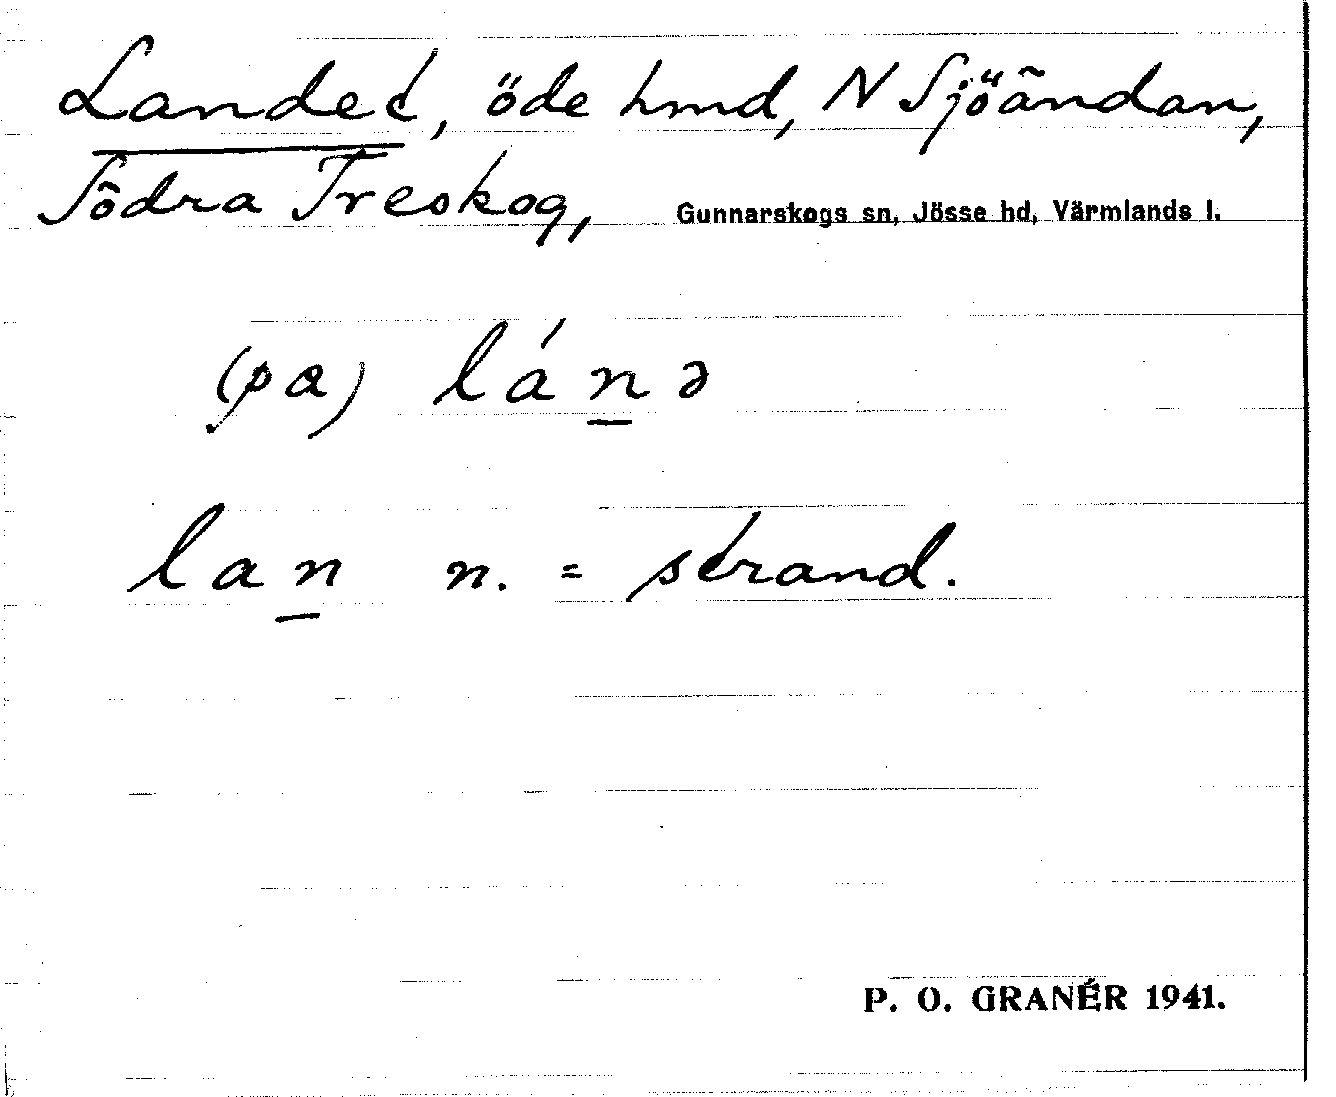 Landet, öde hmd, N Sjöändan,
Södra Treskog, Gunnarskogs sn, Jösse hd, Värmlands l.
(pa) lánə
lan n. = strand.
P. O. GRANÉR 1941.